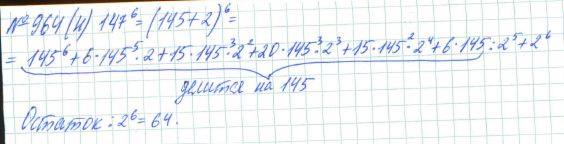 №964(н) 147⁶=(145+2)⁶=
=145⁶+6·145⁵·2+15·145³2²+20·145³·2³+15·145²·2⁴+6·145:2⁵+2⁶
делится на 145
Остаток:2⁶=64.